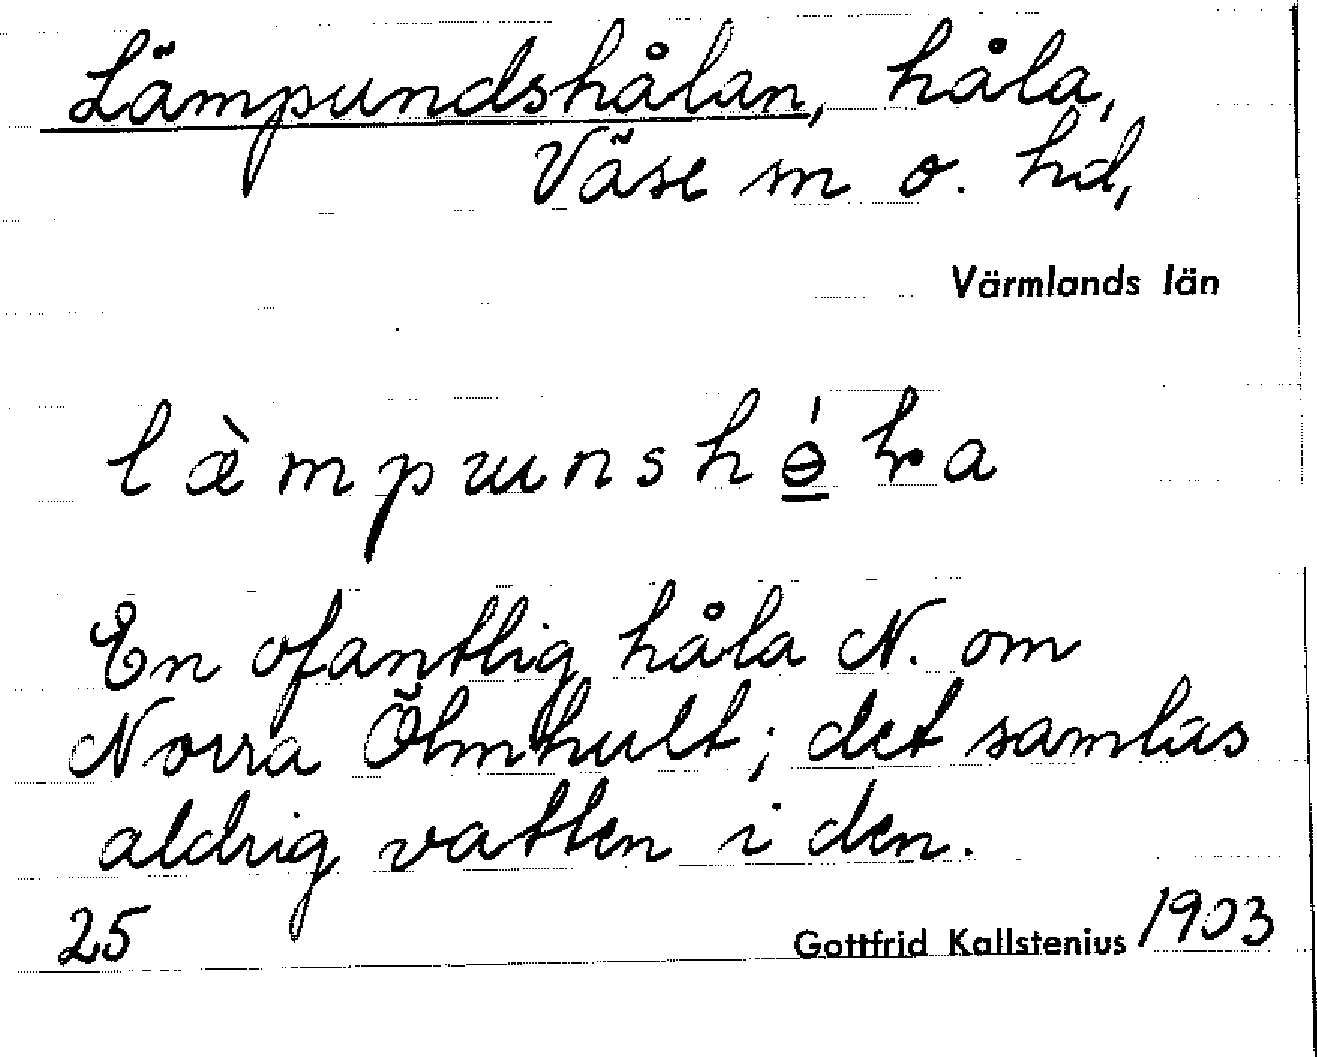 Lämpundshålan, håla,
Väse sn o. hd,
Värmlands län
En ofantlig håla N. om
Norra Ölmhult; det samlas
aldrig vatten i den.
25 Gottfrid Kallstenius 1903